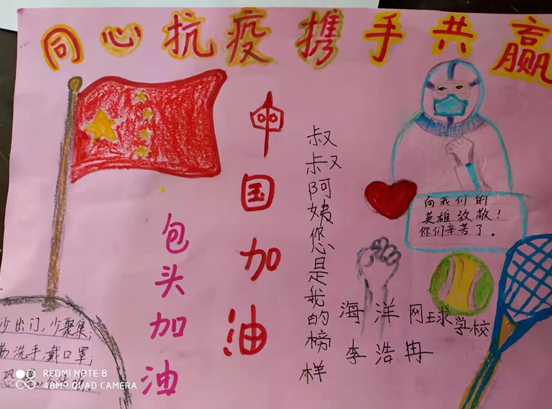 同心抗疫携手共赢
中国加油
包头加油
叔叔阿姨您是我的榜样
向我们的
英雄致敬!
你们辛苦了。
海洋网球学校
李浩冉
少出门,少聚集,
洗手戴口罩,
REDMI NOTE 8
48MP QUAD CAMERA